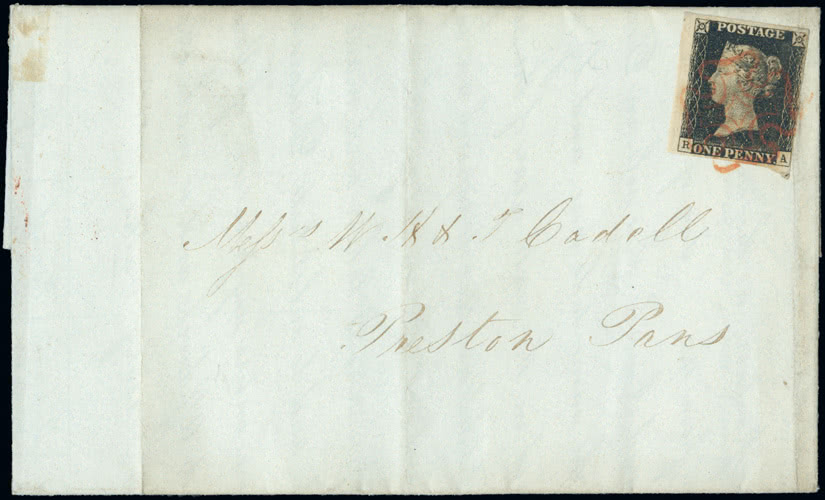 POSTAGE
R ONE PENNY A
Messrs W H & T Cadell
Preston Pans